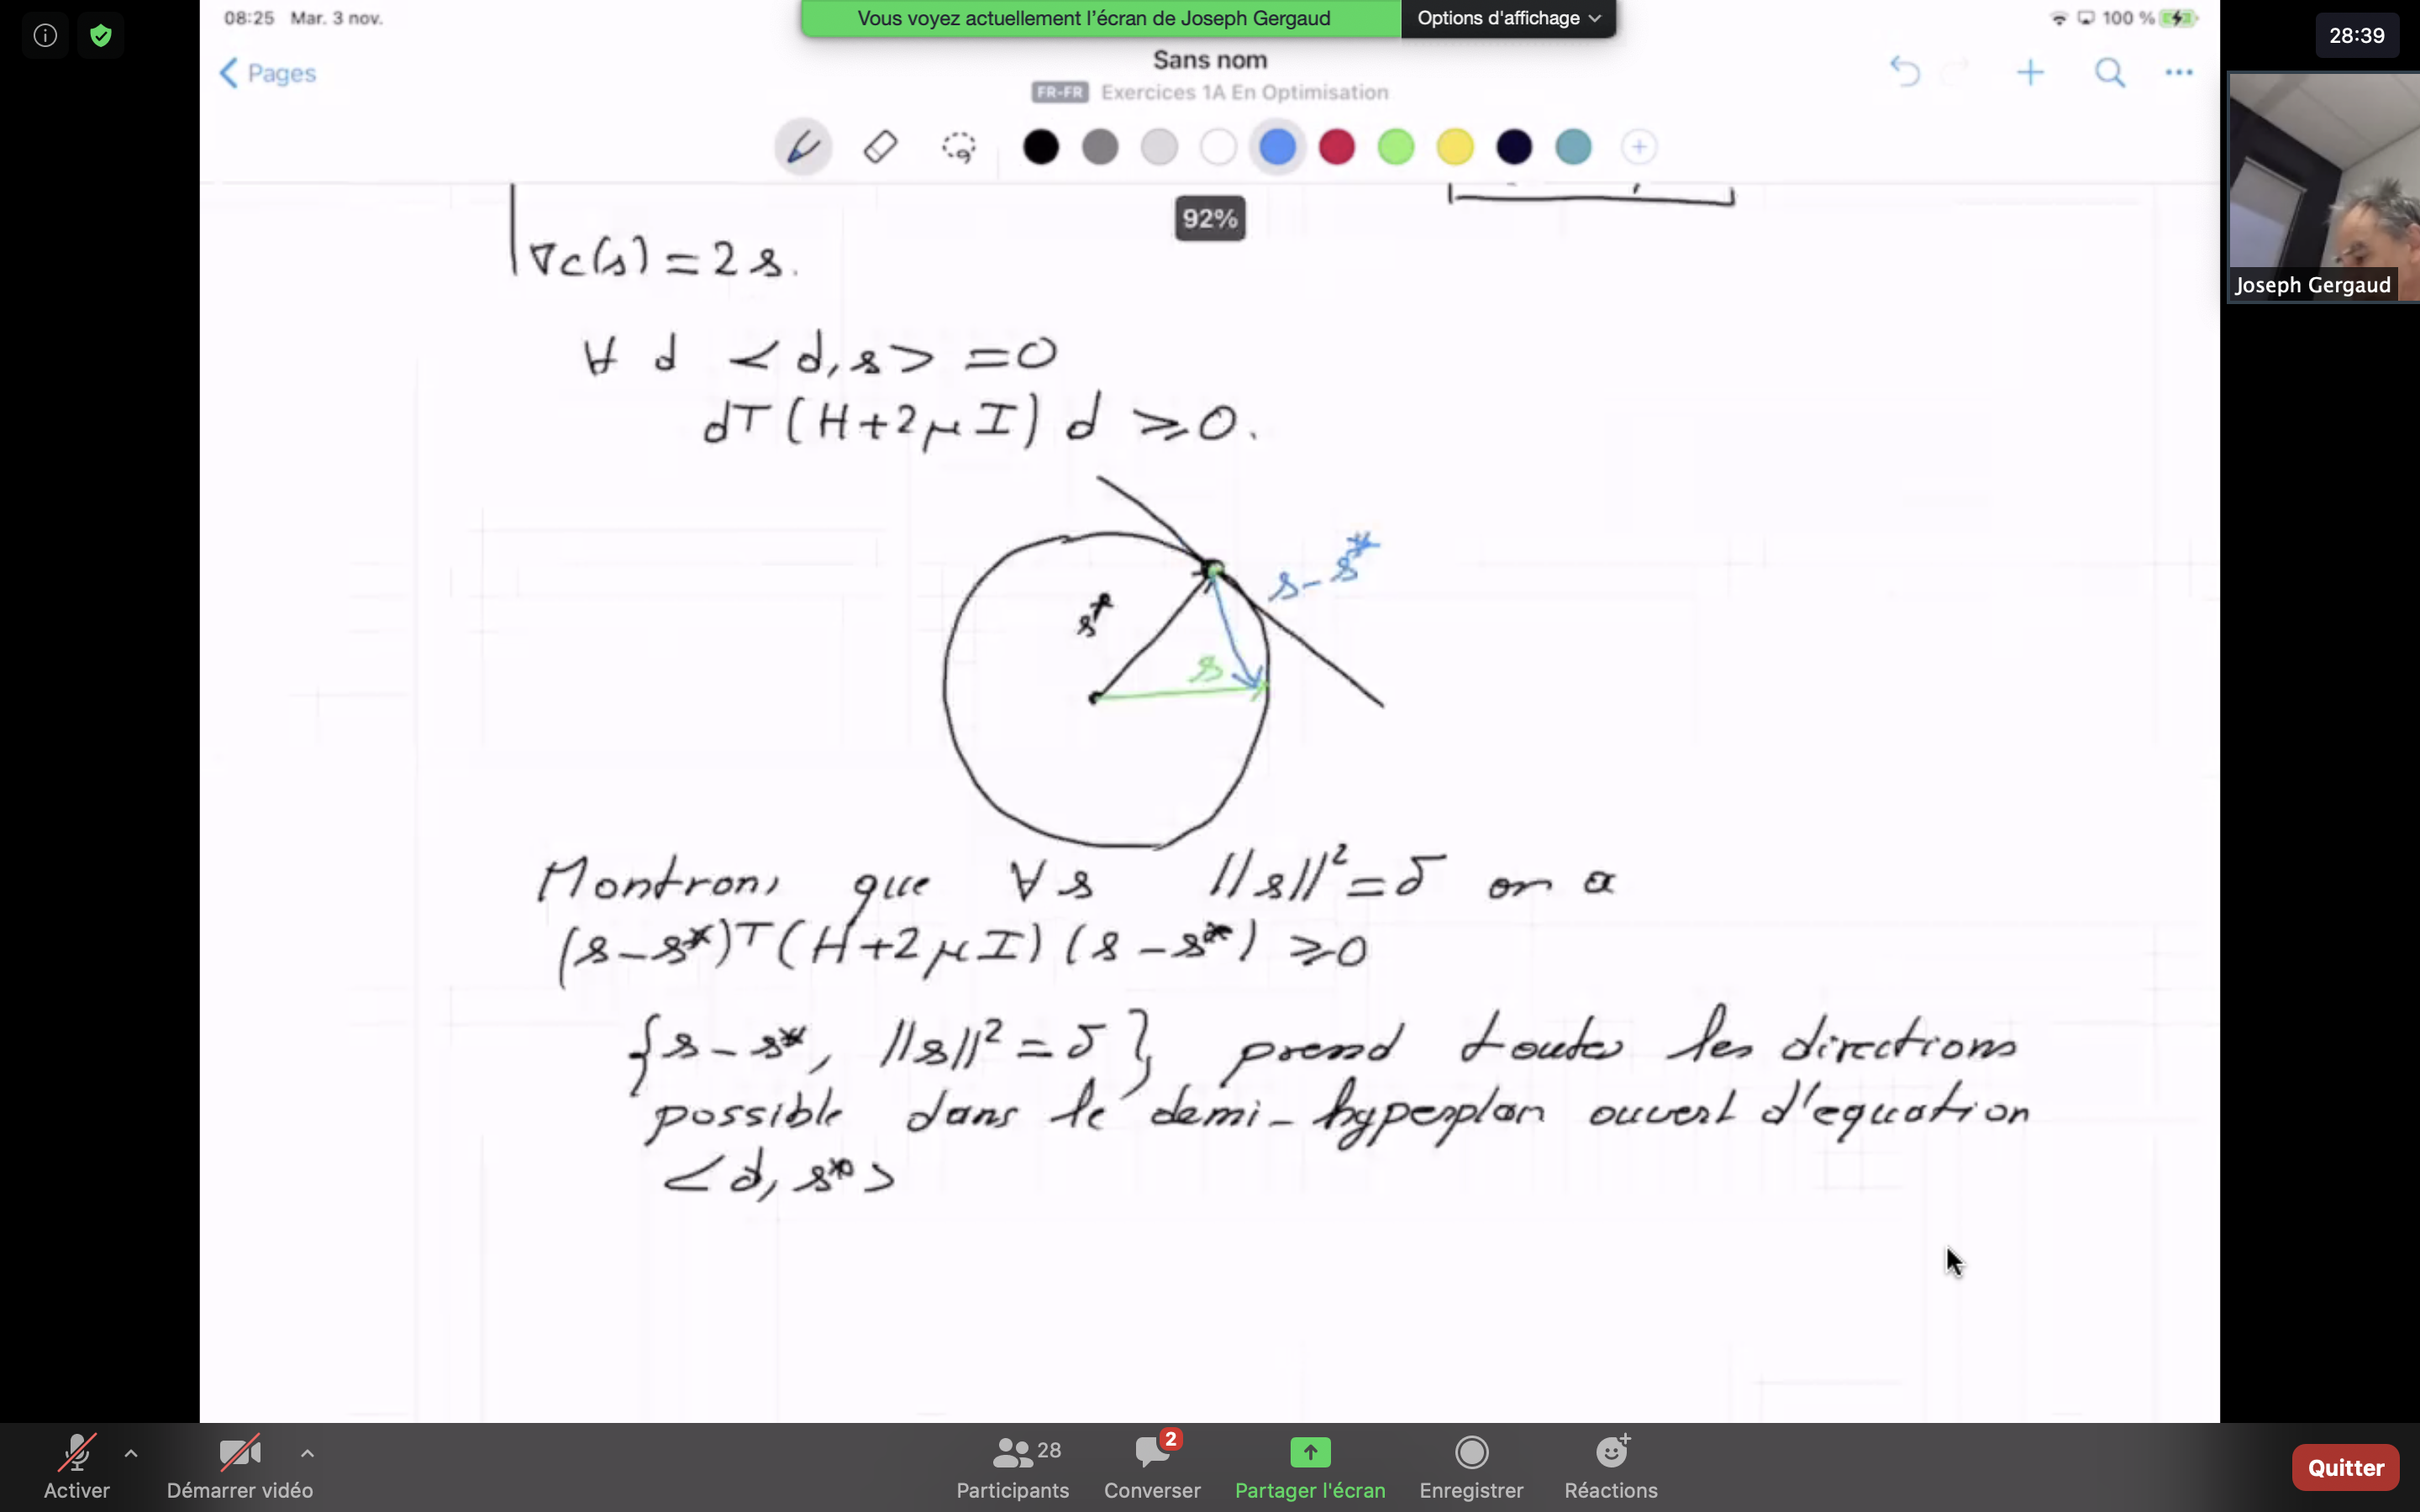 08:25 Mar. 3 nov.
Vous voyez actuellement l'écran de Joseph Gergaud
Options d'affichage
100 %
28:39
Pages
Sans nom
FR-FR Exercices 1A En Optimisation
92%
Joseph Gergaud
∇c(s) = 2s.
∀ d <d, s> = 0
dT(H+2μI) d ≥ 0.
s - s*
s*
s
Montrons que ∀ s ||s||² = δ on a
(s - s*)T(H+2μI)(s - s*) ≥ 0
{s - s*, ||s||² = δ} prend toutes les directions
possible dans le demi-hyperplan ouvert d'equation
<d, s*>
Activer
Démarrer vidéo
28
Participants
2
Converser
Partager l'écran
Enregistrer
Réactions
Quitter